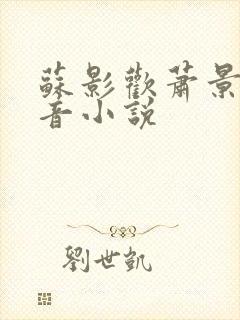 蘇影歡蕭景
音小説
劉世凱